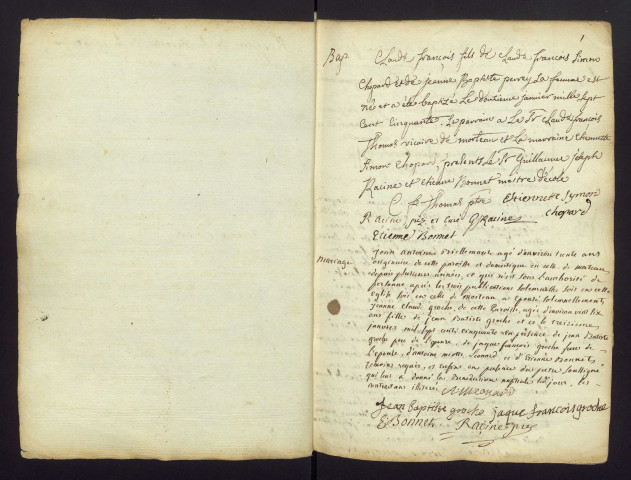 1
Bap. Claude françois fils de Claude françois Simon
Chopard et de Jeanne Baptiste perrey sa femme est
né et a été baptizé Le douzieme janvier mille sept
cent cinquante. Le parrain a été le Sr Claude françois
Thomas vicaire de morteau et La marraine etiennette
Simon Chopard, presents Le Sr Guillaume joseph
Racine et etienne Bonnet maitre d'ecole
C. f. Thomas ptre Etiennete Symon
Racine ptre et curé G Racine chopard
Etienne Bonnet
mariage jean antoine agé d'environ trente ans
originaire de cette paroisse et domestique en celle de morteau
depuis plusieurs années, et qui n'est sous l'authorité de
personne après les trois publications solemnelles fois en cette
eglise fois en celle de morteau a epousé solemnellement
jeanne claude groche, de cette paroisse, agée d'environ vint six
ans fille de jean Batiste groche et ce le treizieme
janvier mil sept cents cinquante en presence de jean Batiste
groche pere de l'epouse, de jaque françois groche frere de
l'epouse, d'antoine et d'Etienne Bonnet,
temoins requis, et enfin en presence du pretre soussigné
qui leur a donné la benediction nuptiale led. jour, les
contractans illiterés
Jean Baptiste groche jaque françois groche
E Bonnet Racine ptre